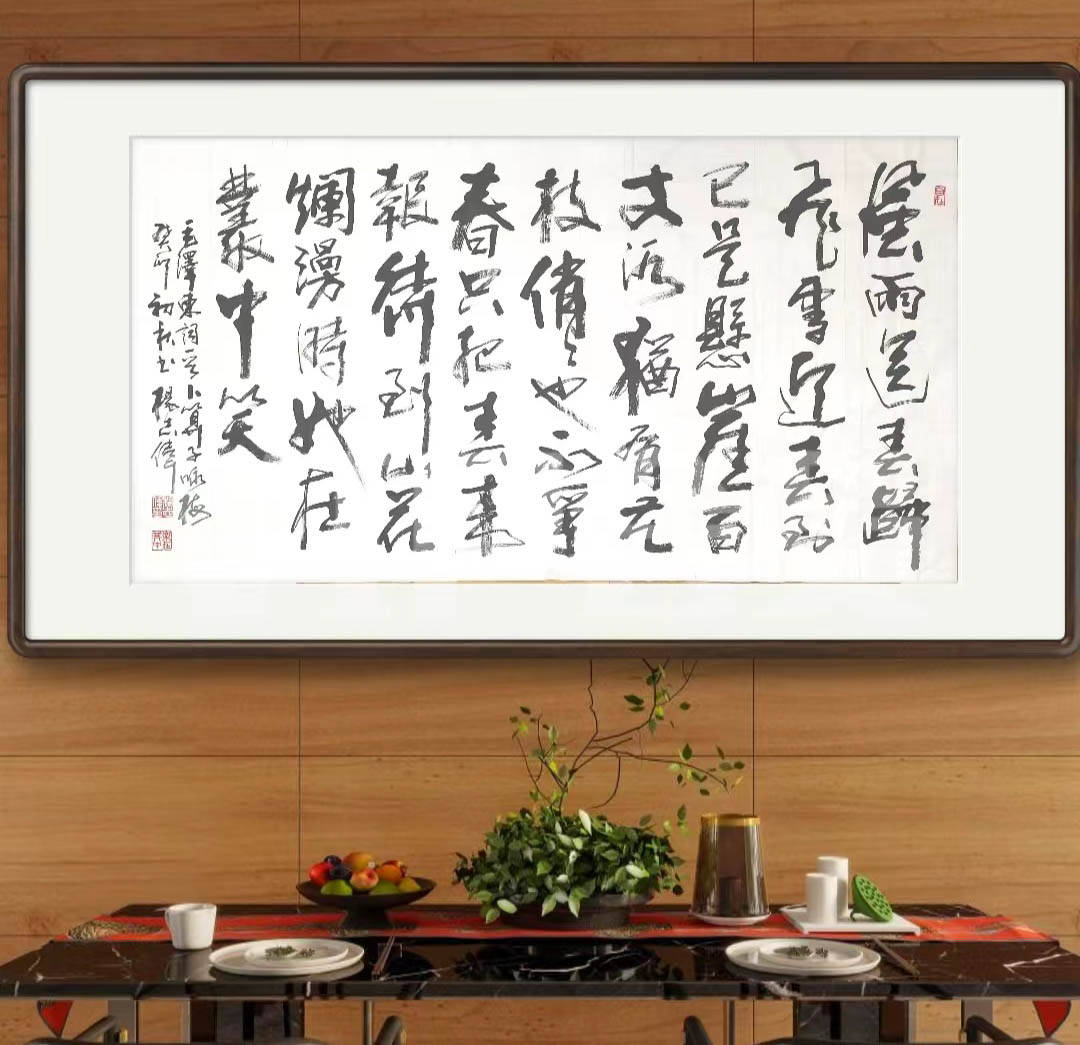 風雨送春歸
飛雪迎春到
已是懸崖百
丈冰猶有花
枝俏々也不爭
春只把春來
報待到山花
爛漫時她在
叢中笑
毛澤東詞卜算子咏梅
癸卯初秋書楊偉